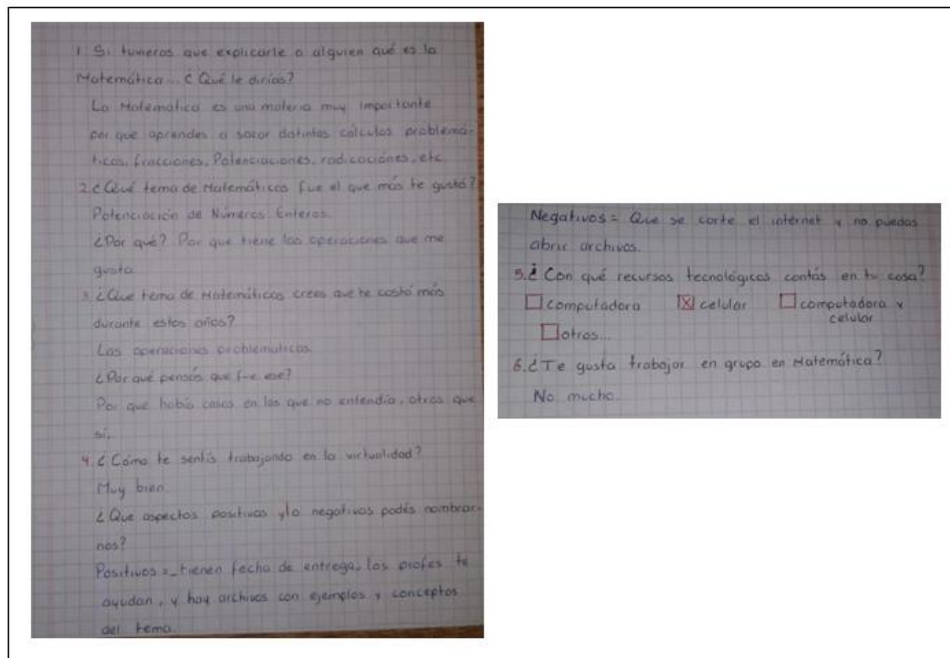 1. Si tuvieras que explicarle a alguien qué es la
Matemática... ¿Qué le dirías?
La Matemática es una materia muy importante
por que aprendes a sacar distintos cálculos problemá-
ticos, fracciones, Potenciaciones, radicaciones, etc.
2. ¿Qué tema de Matemáticas fue el que más te gustó?
Potenciación de Números Enteros.
¿Por qué? Por que tiene las operaciones que me
gusta.
3. ¿Que tema de Matemáticas crees que te costó más
durante estos años?
Las operaciones problemáticas.
¿Por qué pensás que fue ese?
Por que había casos en los que no entendía, otros que
sí.
4. ¿Cómo te sentís trabajando en la virtualidad?
Muy bien.
¿Que aspectos positivos y/o negativos podés nombrar-
nos?
Positivos = tienen fecha de entrega, los profes te
ayudan, y hay archivos con ejemplos y conceptos
del tema.
Negativos = Que se corte el internet y no puedas
abrir archivos.
5. ¿Con qué recursos tecnológicos contás en tu casa?
computadora X celular computadora y
celular
otros...
6. ¿Te gusta trabajar en grupo en Matemática?
No mucho.